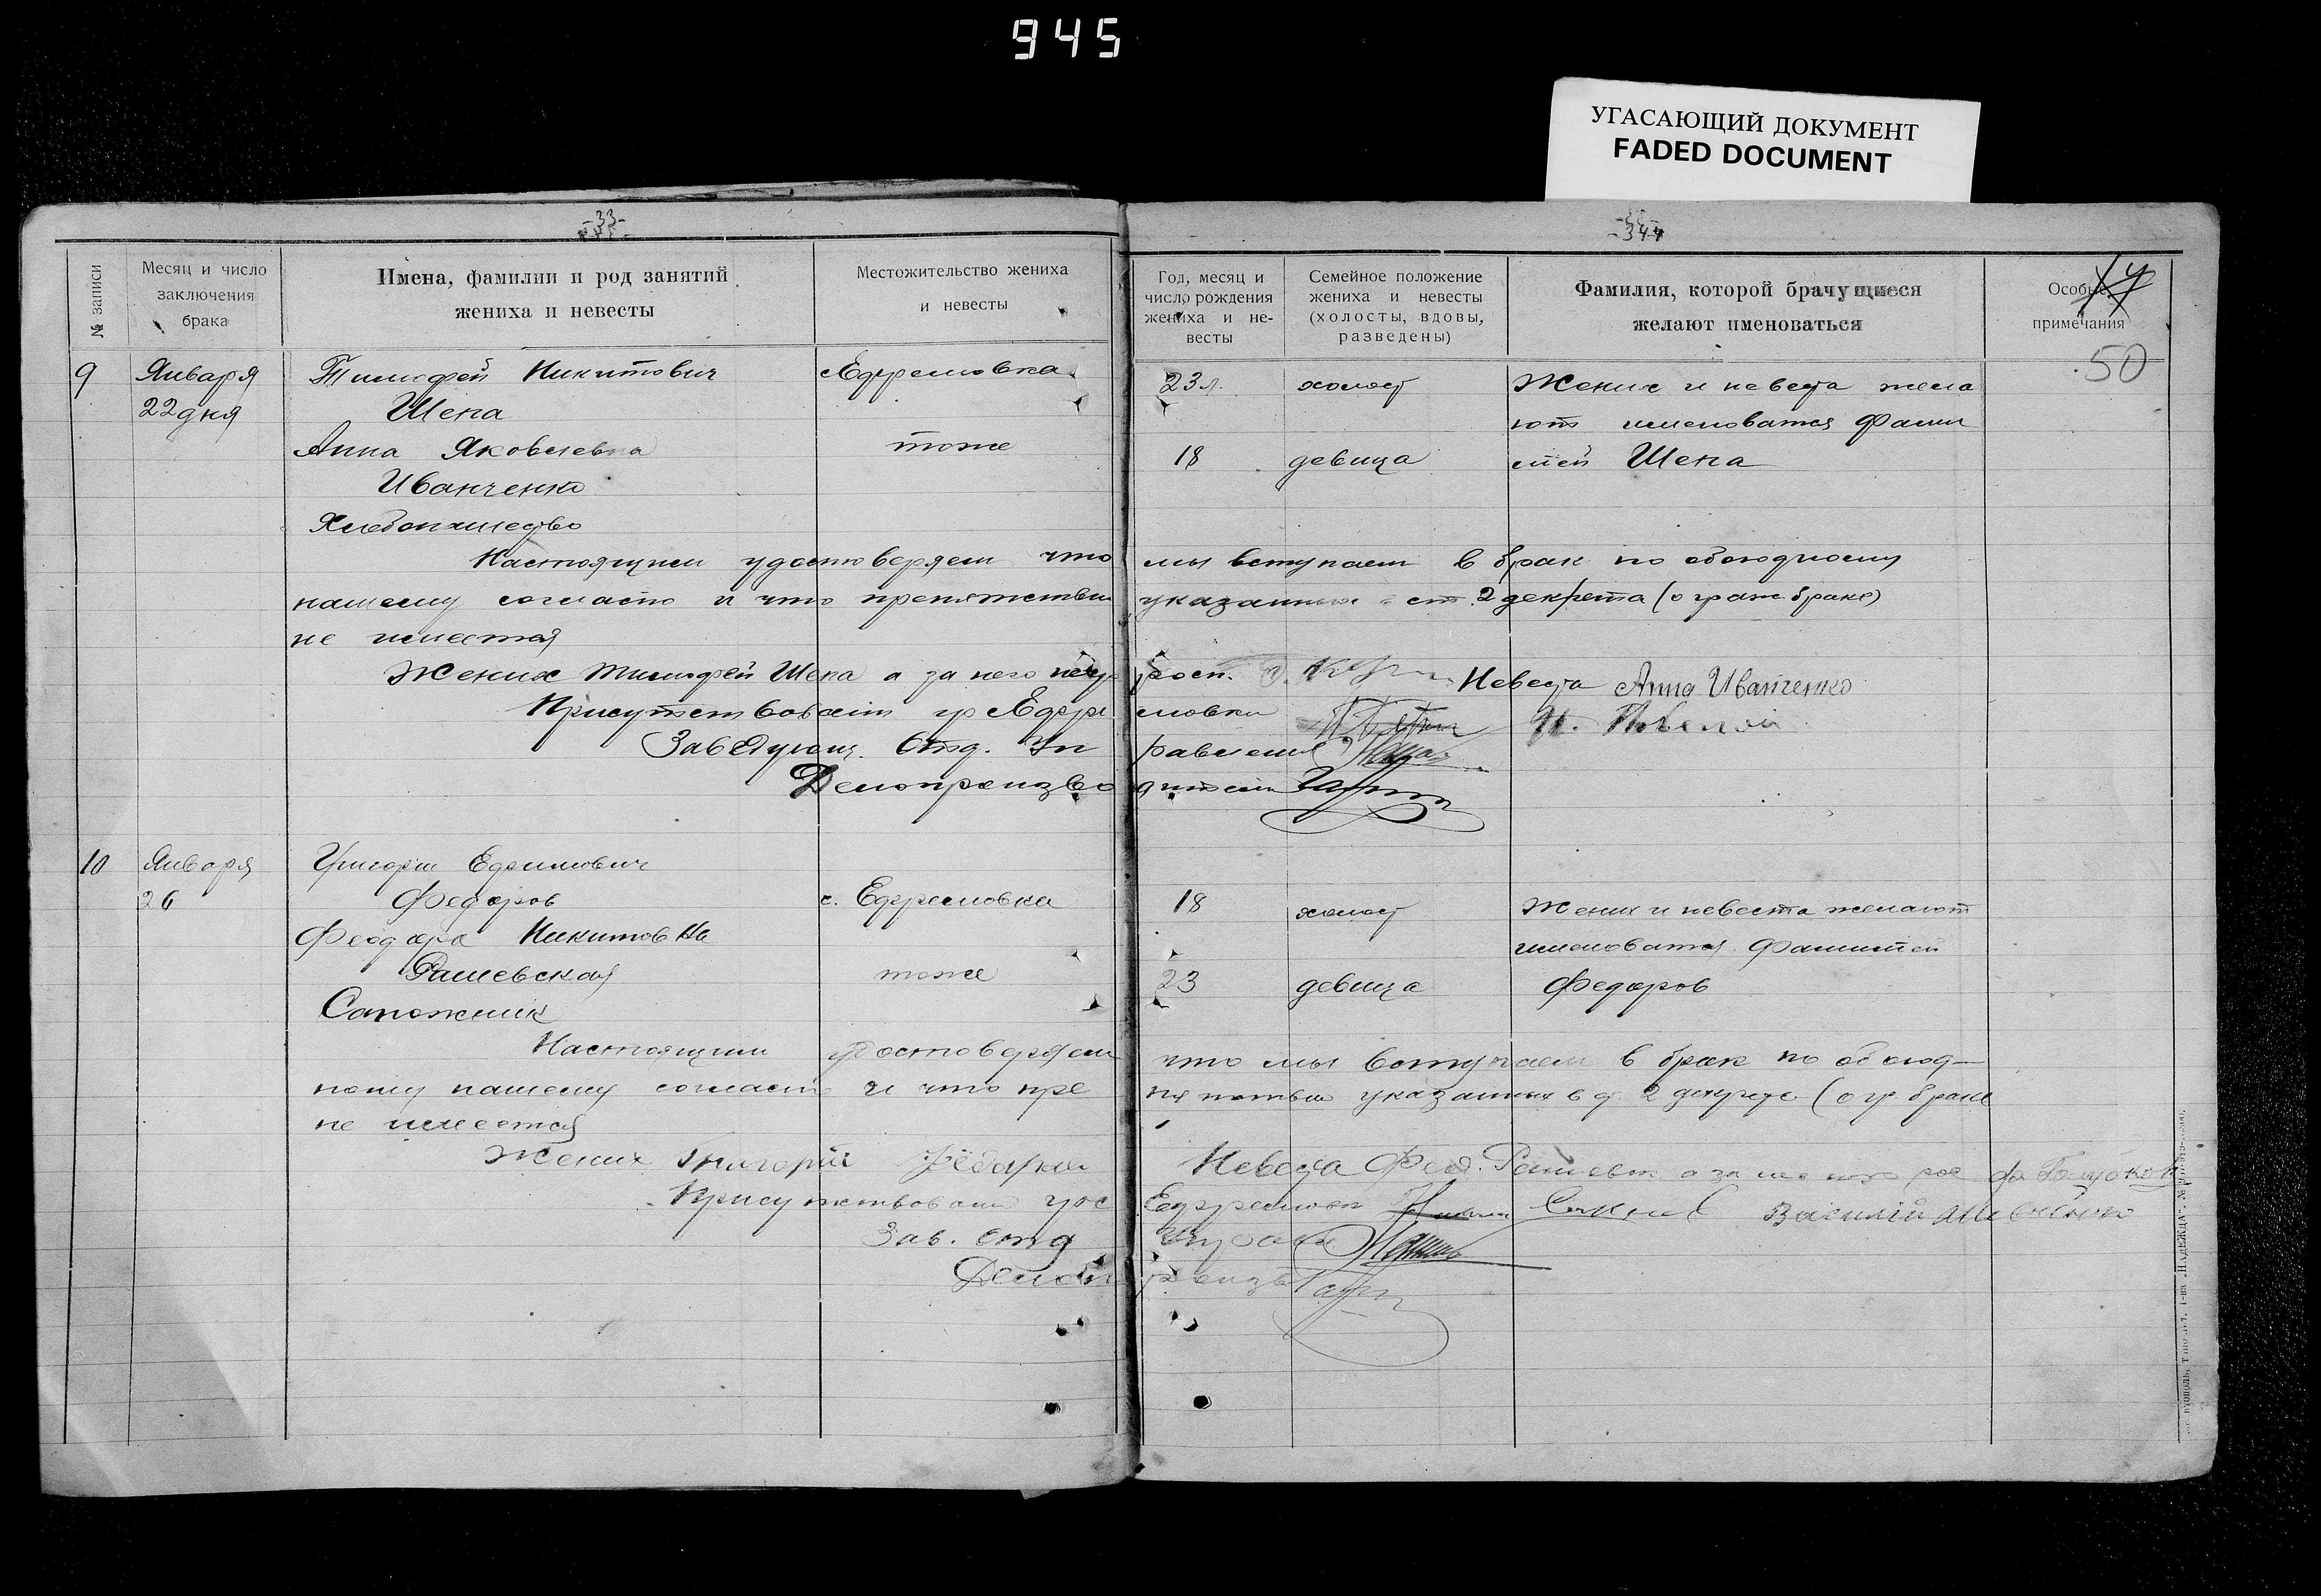 945
УГАСАЮЩИЙ ДОКУМЕНТ
FADED DOCUMENT
-33-
-34-
№ записи
Месяц и число заключения брака
Имена, фамилии и род занятий жениха и невесты
Местожительство жениха и невесты
Год, месяц и число рождения жениха и невесты
Семейное положение жениха и невесты (холосты, вдовы, разведены)
Фамилия, которой брачущиеся желают именоваться
Особые примечания
50
9 Января Тимофей Никитович Ефремовка 23 л. холост Жених и невеста жела
22 дня Шепа ют именоватся фами
Анна Яковлевна тоже 18 девица лией Шепа
Иванченко
Хлебопашество
Настоящим удостоверяем что мы вступаем в брак по обоюдному
нашему согласию и что препятствии указанных ст. 2 декрета (о граж. браке)
не имеется
Жених Тимофей Шепа а за него негр росп. Невеста Анна Иванченко
Присутствовали гр Ефре мовки
Заведующ. Отд. Уп равления
Делопроизво дитель
10 Января Григорий Ефимович
26 Федоров с. Ефремовка 18 холост Жених и невеста желают
Феодора Никитовна именоватся фамилией
Рашевская тоже 23 девица Федоров
Сапожник
Настоящим удостоверяем что мы вступаем в брак по обоюд-
ному нашему согласию и что пре пятствии указанных в 2 декрета (о гр браке
не имеется
Жених Григорий Невеста Феод. а за нее
Присутствовали Ефремовки Василий
Зав. Отд Управ
Делоп роизв